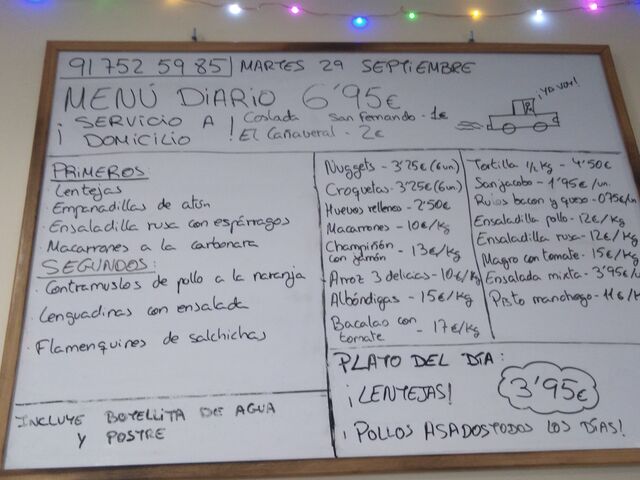 91 752 59 85 MARTES 29 SEPTIEMBRE
MENÚ DIARIO 6'95€
¡YA VOY!
¡ SERVICIO A
DOMICILIO !
Coslada San Fernando - 1€
El Cañaveral - 2€
PRIMEROS:
· Lentejas
· Empanadillas de atún
· Ensaladilla rusa con espárragos
· Macarrones a la carbonara
SEGUNDOS:
· Contramuslos de pollo a la naranja
· Lenguadinas con ensalada
· Flamenquines de salchichas
INCLUYE BOTELLITA DE AGUA
Y POSTRE
Nuggets - 3'25€ (6un)
Croquetas - 3'25€ (6un)
Huevos rellenos - 2'50€
Macarrones - 10€/Kg
Champiñón
con jamón - 13€/Kg
Arroz 3 delicias - 10€/Kg
Albóndigas - 15€/Kg
Bacalao con
tomate - 17€/Kg
Tortilla 1/2 Kg - 4'50€
San jacobo - 1'95€/un.
Rulos bacon y queso - 0'75€/un
Ensaladilla pollo - 12€/Kg
Ensaladilla rusa - 12€/Kg
Magro con tomate - 15€/Kg
Ensalada mixta - 3'95€/u
Pisto manchego - 11€/K
PLATO DEL DÍA:
¡LENTEJAS! 3'95€
¡ POLLOS ASADOS TODOS LOS DÍAS!